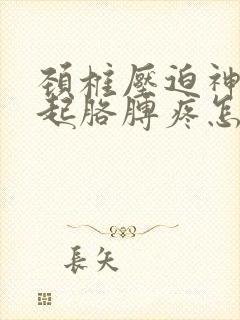 頚椎壓迫神
起胳膊疼怎
長矢